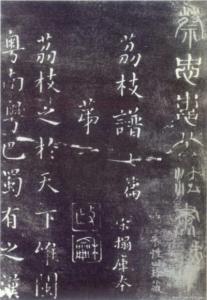 蔡忠惠公
荔枝譜七篇
宋搨庫本
第
荔枝之於天下唯閩
粵南粵巴蜀有之漢